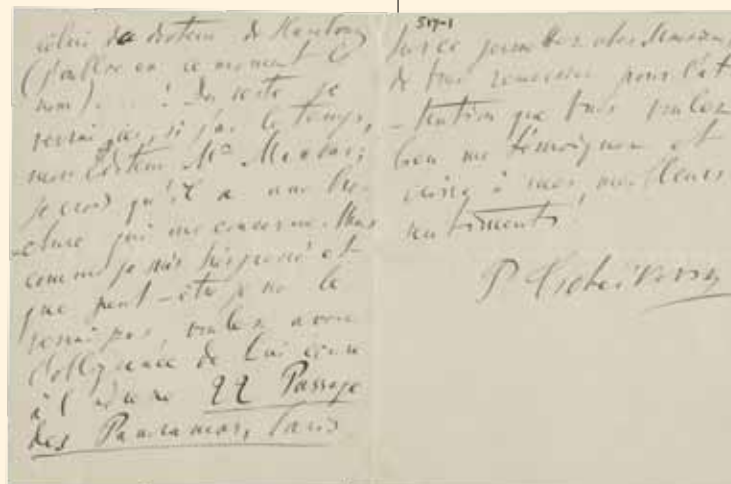 celui du docteur de Hambourg
(j'oublie en ce moment le
nom). ! Du reste je
verrai ici, si j'ai le temps,
mon éditeur Mr Mackar;
je crois qu'il a une bro-
chure qui me concerne. Mais
comme je suis très pressé et
que peut-être je ne le
verrai pas veuillez avoir
l'obligeance de lui écrire
à l'adresse 22 Passage
des Panoramas, Paris
517-1
Sur ce permettez-moi Monsieur,
de vous remercier pour l'at-
-tention que vous voulez
bien me témoigner et
croire à mes meilleurs
sentiments,
P. Tschaïkovsky